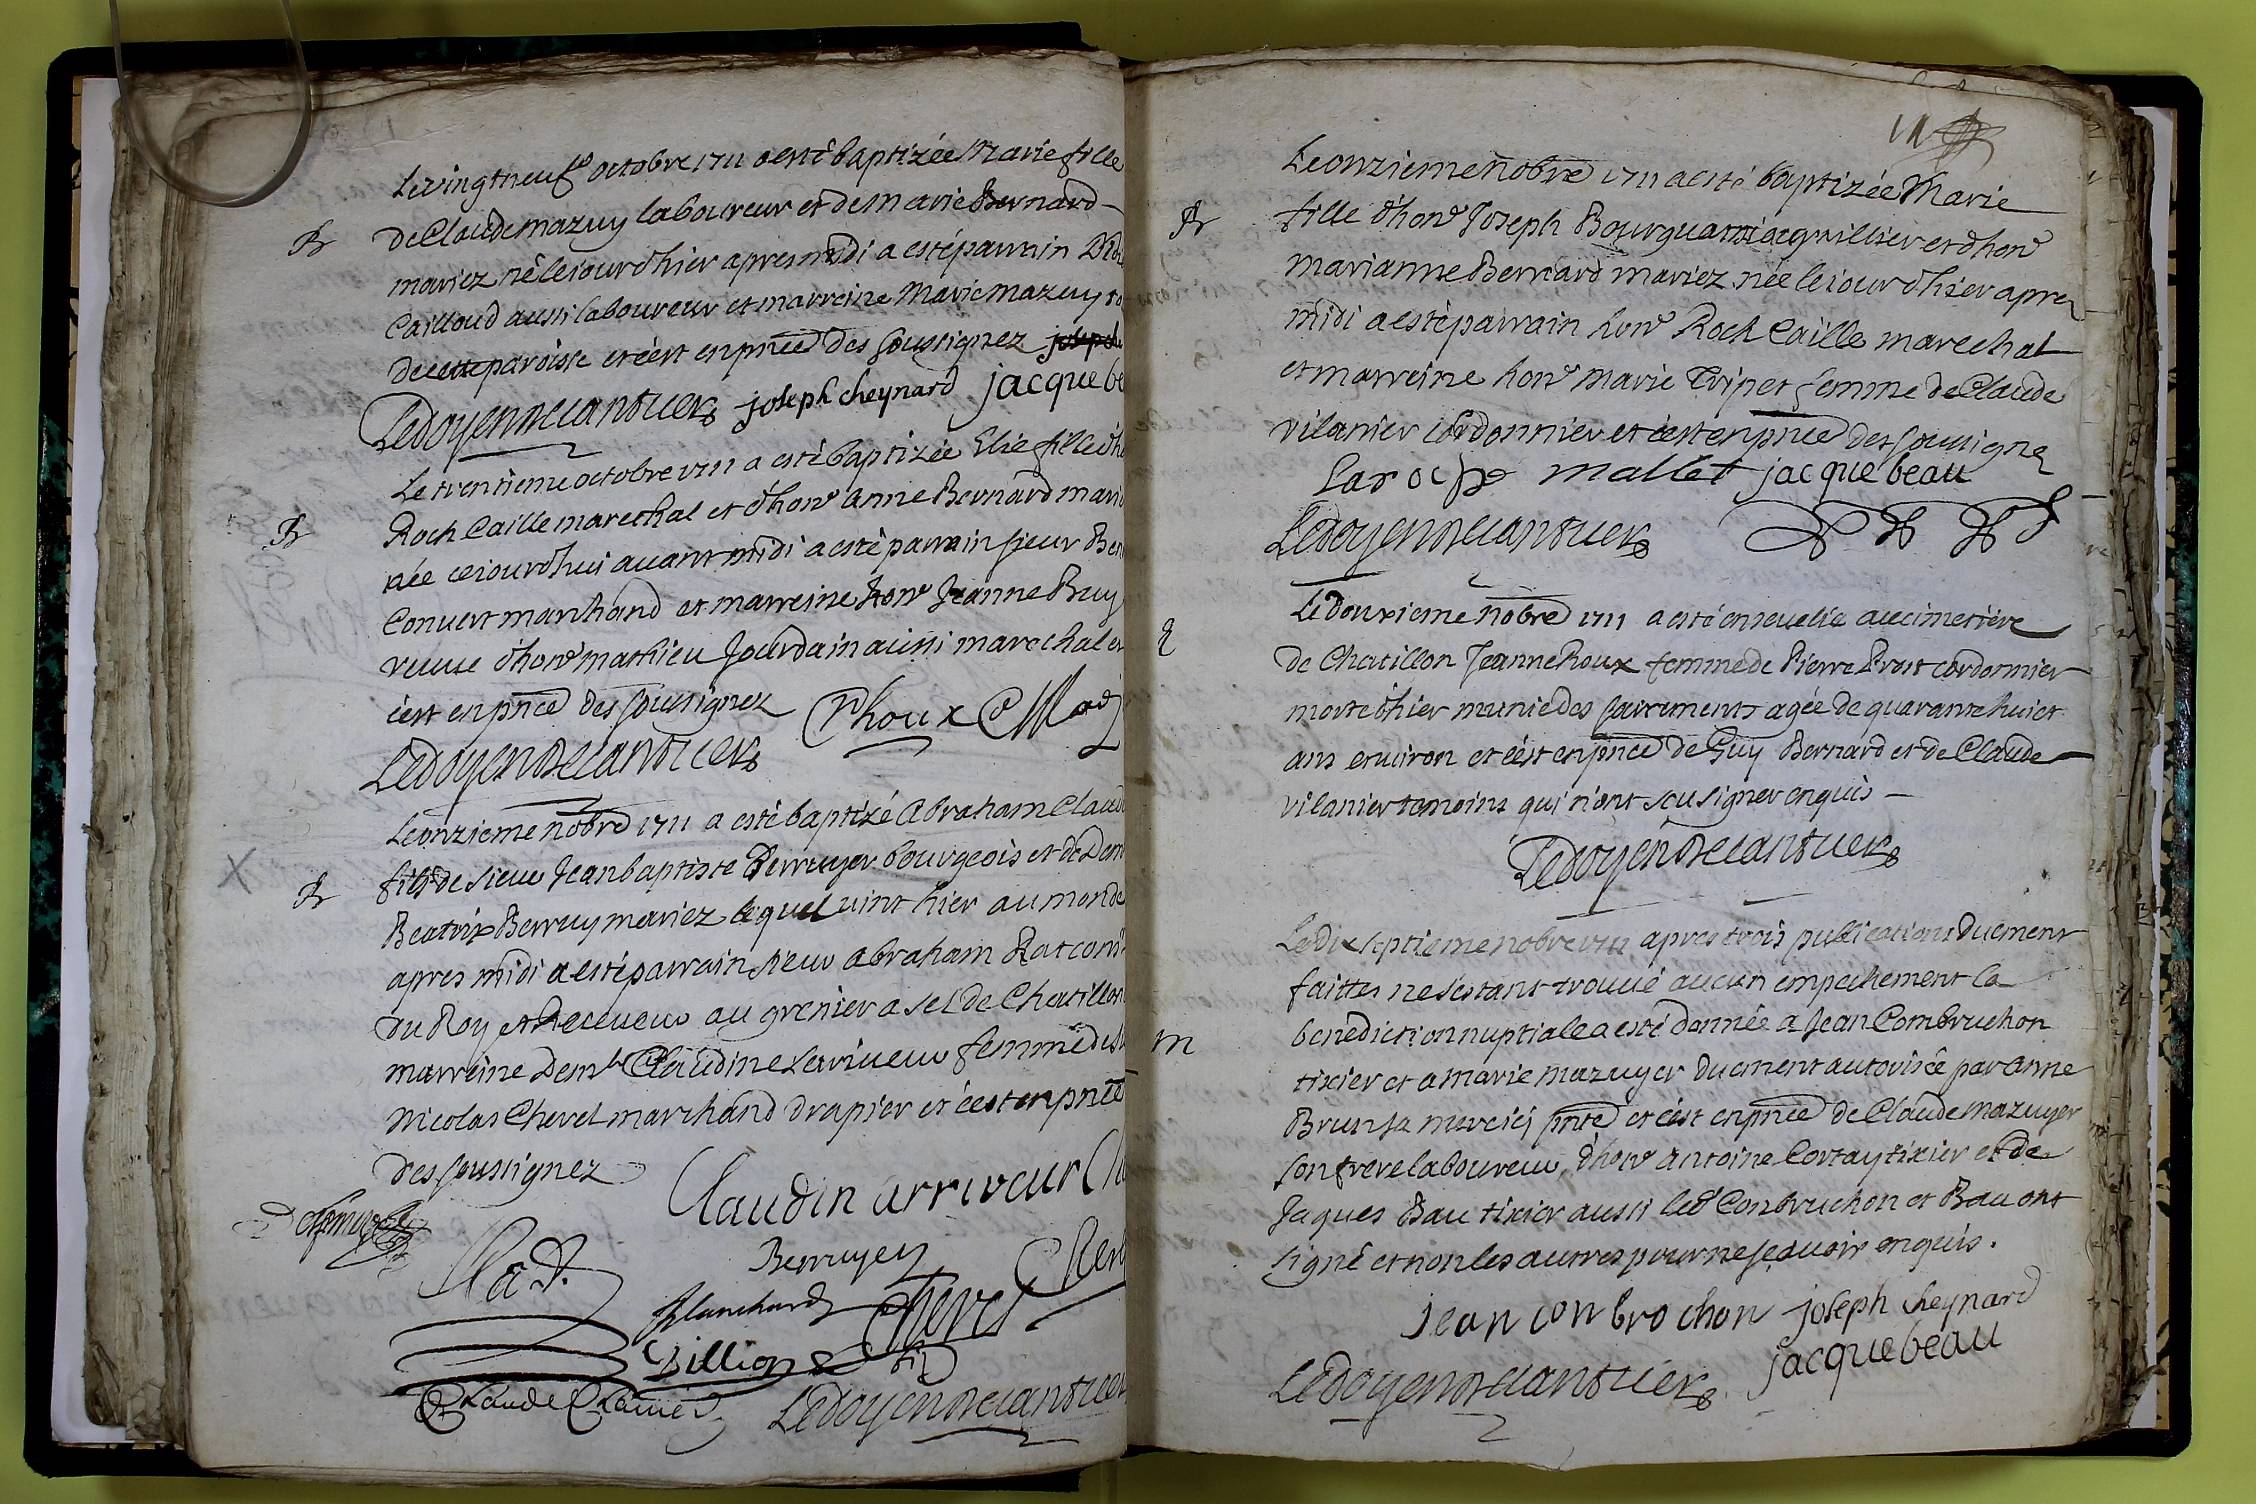 Le vingtneufe octobre 1711 a esté baptizée Marie fille
B
de Claude mazuy laboureur et de marie Bernard
mariez né le iour d'hier apres midi a esté parrain
Cailloud aussi laboureur et marreine Marie Mazuy
de cette paroisse et c'est en pnce des soussignez joseph
Ledoyen Decandtuers joseph cheynard jacque be
Le trentieme octobre 1711 a esté baptizée Elie fille d'h
B
Roch Caille marechal et d'hon^e anne Bernard mari
née ce iourd'hui avant midi a esté parrain sieur Ben
Convert marchand et marreine hon^e Jeanne Bruy
veuve d'hon^e mathieu Jourdain aussi marechal et
c'est en pnce des soussignez Rhoux
Ledoyen Decandtuers
Le onzieme nobre 1711 a esté baptizé Abraham Claud
X B
fils de sieur Jean baptiste Berruyer bourgeois et de Dem
Beatrix Berruy mariez lequel vint hier au monde
apres midi a esté parrain sieur Abraham Rat cons
du Roy et Receveur au grenier a sel de Chatillon
marreine Dem^le Claudine Lariveur femme de s
Nicolas Chevel marchand drapier et c'est en pnce
des soussignez Claudin arriveur
Rat. Berruyer
Blanchard Chevel
Billion
Claude
Ledoyen Decandtuer
Le onzieme nobre 1711 a esté baptizée Marie
B
fille d'hon^e Joseph Bourgua et d'hon^e
marianne Bernard mariez née le iour d'hier apres
midi a esté parrain hon^e Roch Caille marechal
et marreine hon^e Marie Tripet femme de Claude
vilanier cordonnier et c'est en pnce des soussigne
Laroche mallet jacque beau
Ledoyen Decandtuers
Le douzieme nobre 1711 a esté ensevelie au cimetiere
de Chatillon Jeanne Roux femme de Pierre Prost cordonnier
morte d'hier munie des sacrements agée de quarante huict
ans environ et c'est en pnce de Guy Bernard et de Claude
vilanier temoins qui n'ont scu signer enquis
Ledoyen Decandtuers
Le dix septieme nobre 1711 apres trois publications duement
faittes ne s'estant trouvé aucun empechement la
m
benediction nuptiale a esté donnée a Jean Combruchon
tixier et a marie mazuyer duement autorisée par anne
Brun sa mere ici pnte et c'est en pnce de Claude mazuyer
son frere laboureur, d'hon^e Antoine Cortay tixier et de
Jaques Bau tixier aussi led Conbruchon et Bau ont
signé et non les autres pour ne scavoir enquis.
jean conbrochon joseph cheynard
Ledoyen Decandtuers jacque beau